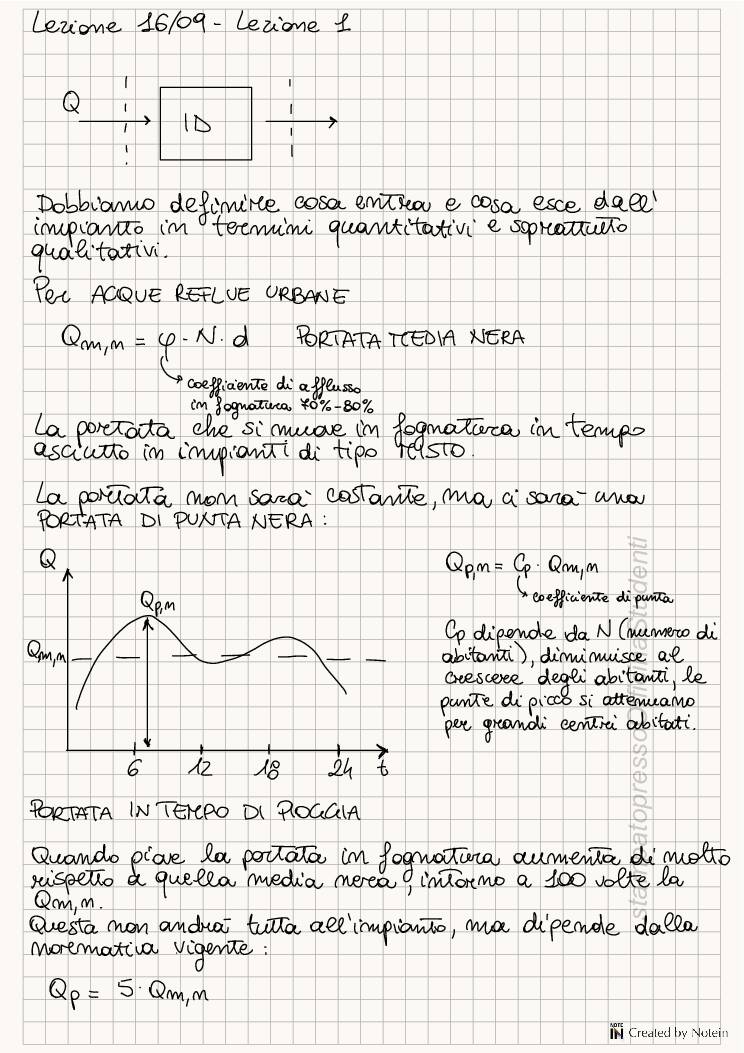 Lezione 16/09 - Lezione 1
Q
ID
Dobbiamo definire cosa entra e cosa esce dall'
impianto in termini quantitativi e soprattutto
qualitativi.
Per ACQUE REFLUE URBANE
Qm,n = φ · N · d PORTATA MEDIA NERA
coefficiente di afflusso
in fognatura 70%-80%
La portata che si muove in fognatura in tempo
asciutto in impianti di tipo MISTO.
La portata non sarà costante, ma ci sarà una
PORTATA DI PUNTA NERA :
Q
Qp,n
Qm,n
6 12 18 24 t
Qp,n = Cp · Qm,n
coefficiente di punta
Cp dipende da N (numero di
abitanti), diminuisce al
crescere degli abitanti, le
punte di picco si attenuano
per grandi centri abitati.
PORTATA IN TEMPO DI PIOGGIA
Quando piove la portata in fognatura aumenta di molto
rispetto a quella media nera, intorno a 100 volte la
Qm,n.
Questa non andrà tutta all'impianto, ma dipende dalla
normativa vigente :
Qp = 5 · Qm,n
NOTE IN Created by Notein